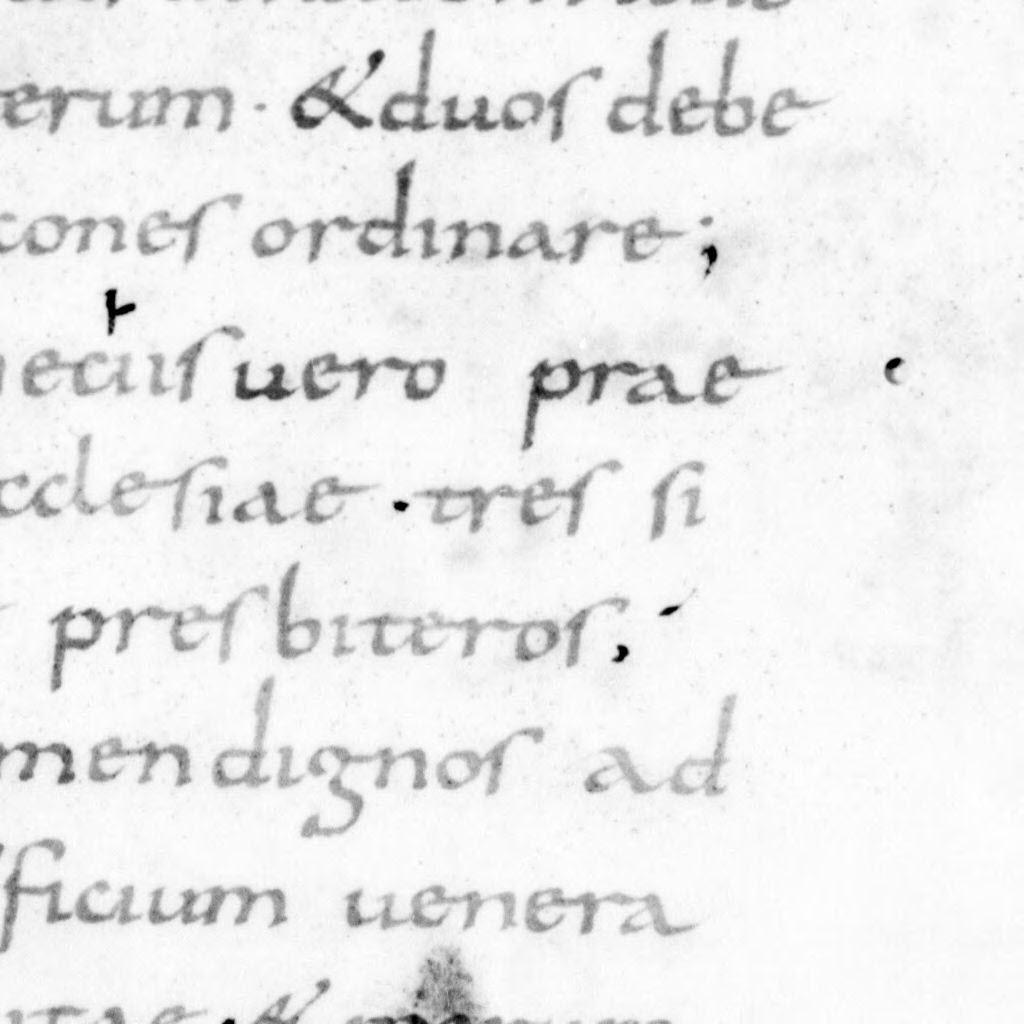 erum · & duos debe
cones ordinare ;
ecius uero prae
cclesiae · tres si
presbiteros ;
men dignos ad
ficium uenera